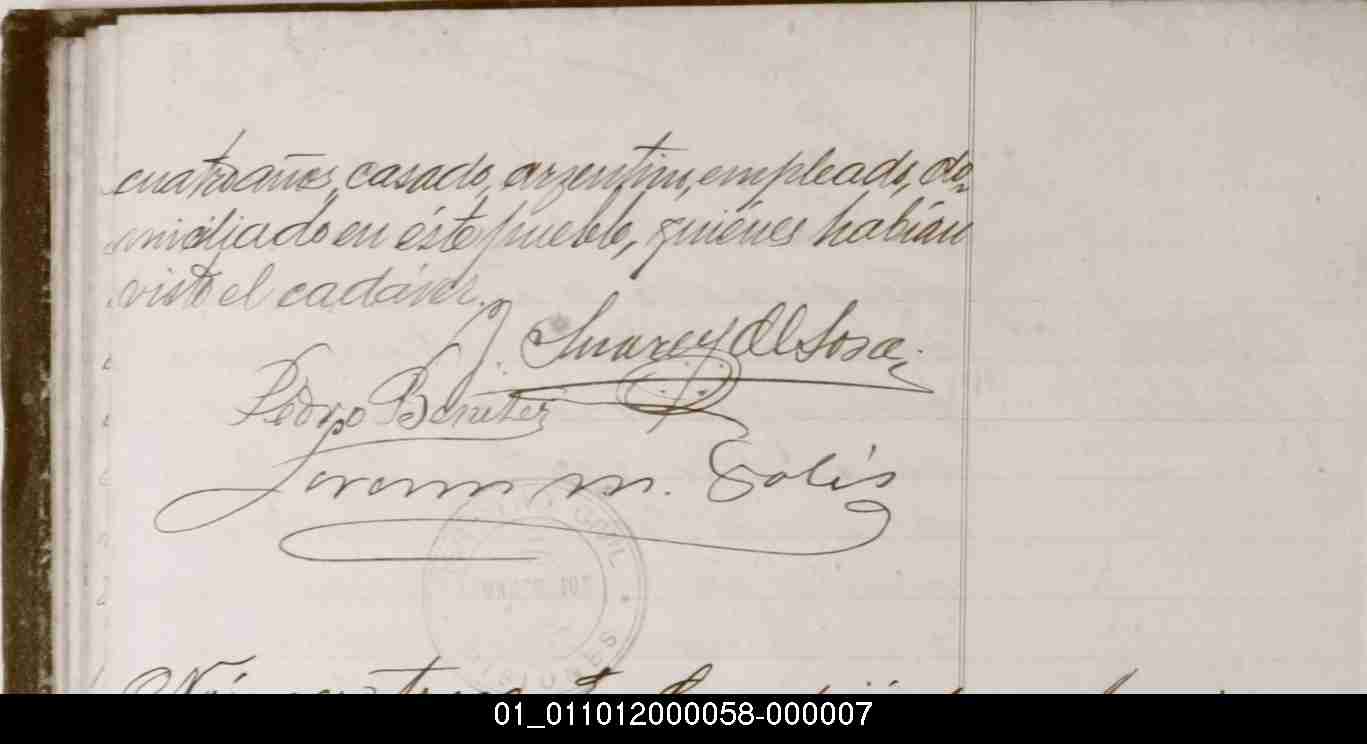 cuatro años, casado, argentino, empleado, do-
miciliado en éste pueblo, quiénes habían
visto el cadáver.
J. Suarez del Sosa
Pedro Benitez
M. Solís
CIVIL
01_011012000058-000007